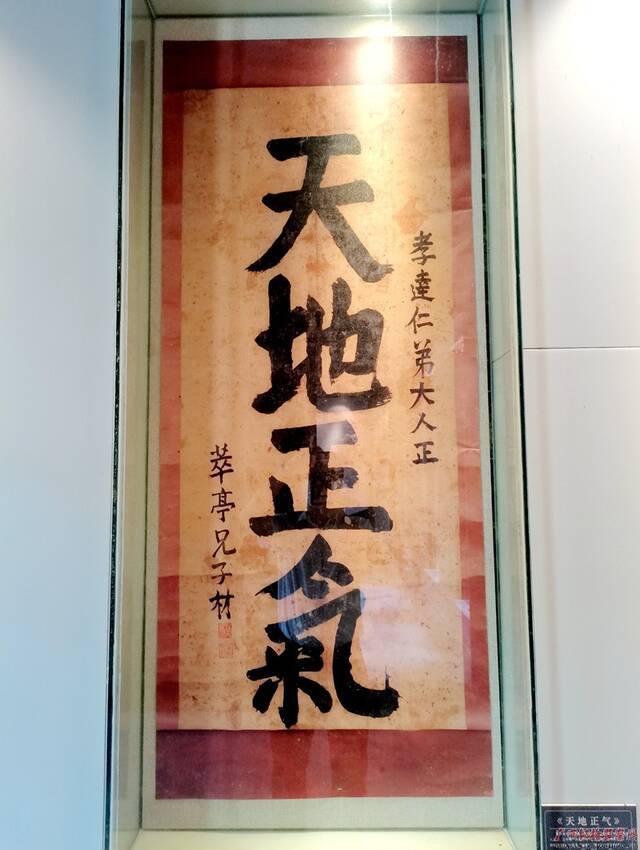 孝達仁弟大人正
天地正氣
萃亭兄子材
《天地正气》